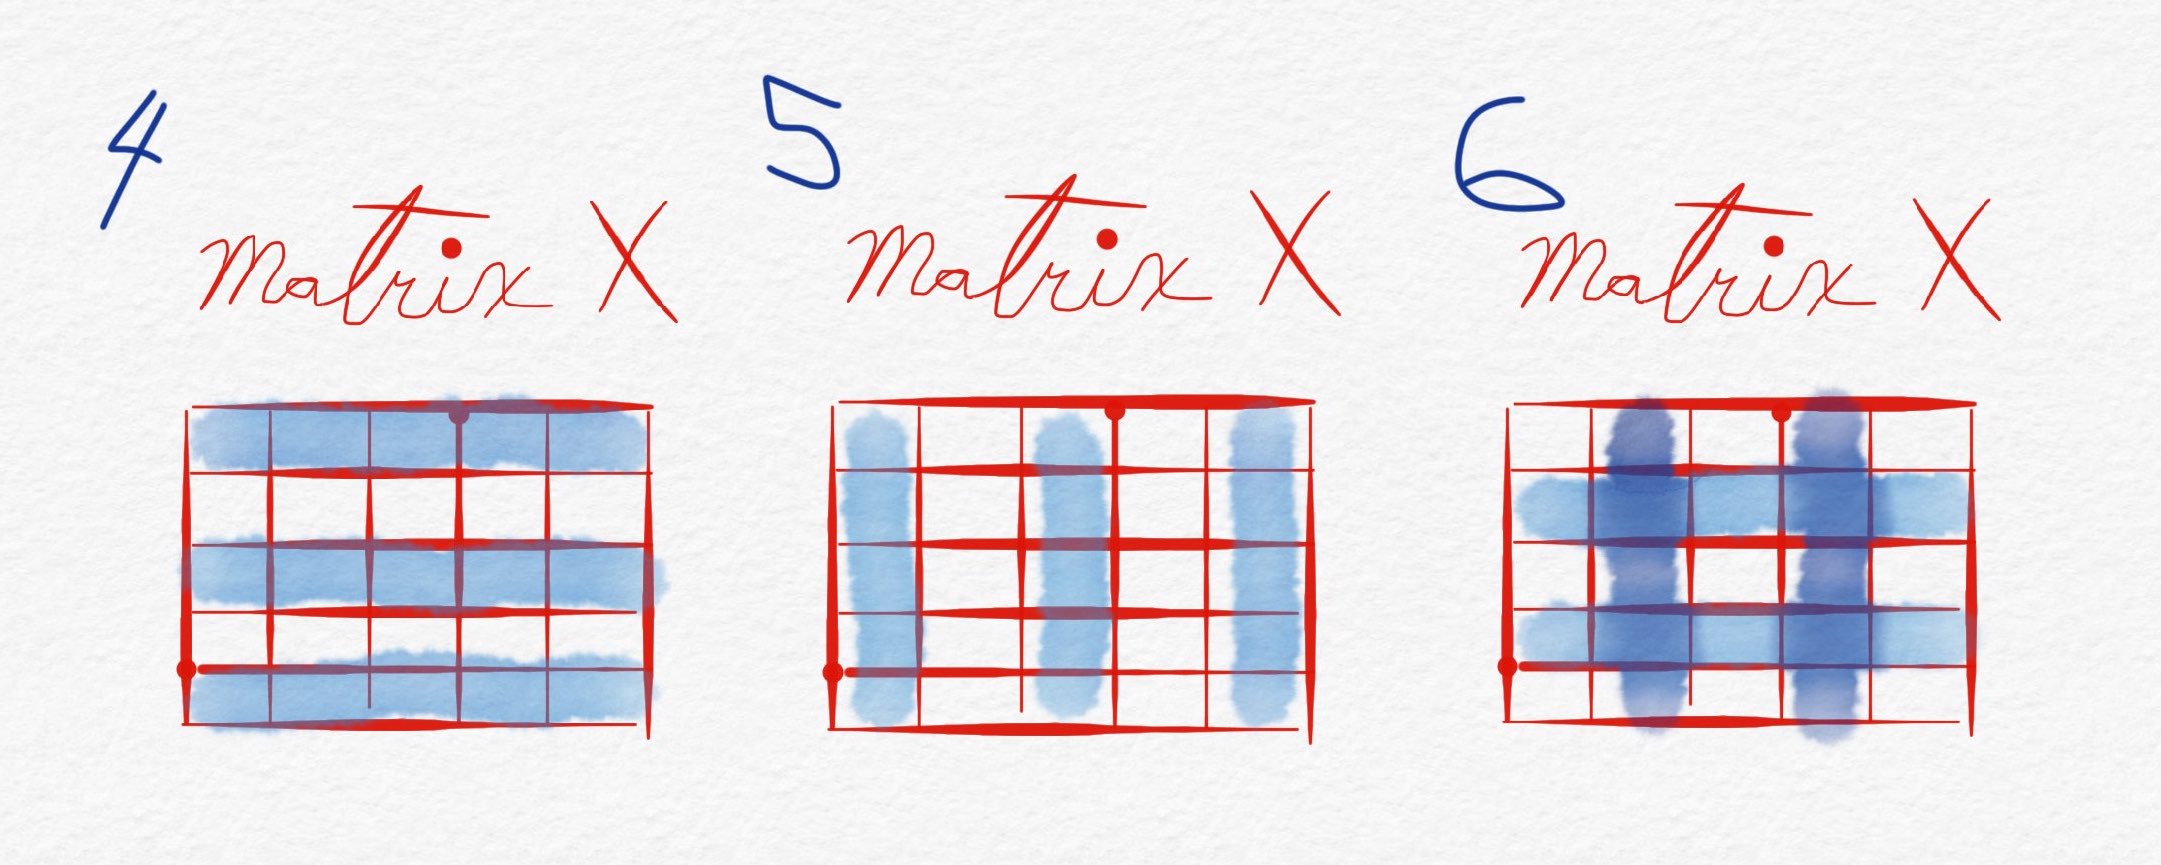 4
matrix X
5
matrix X
6
matrix X